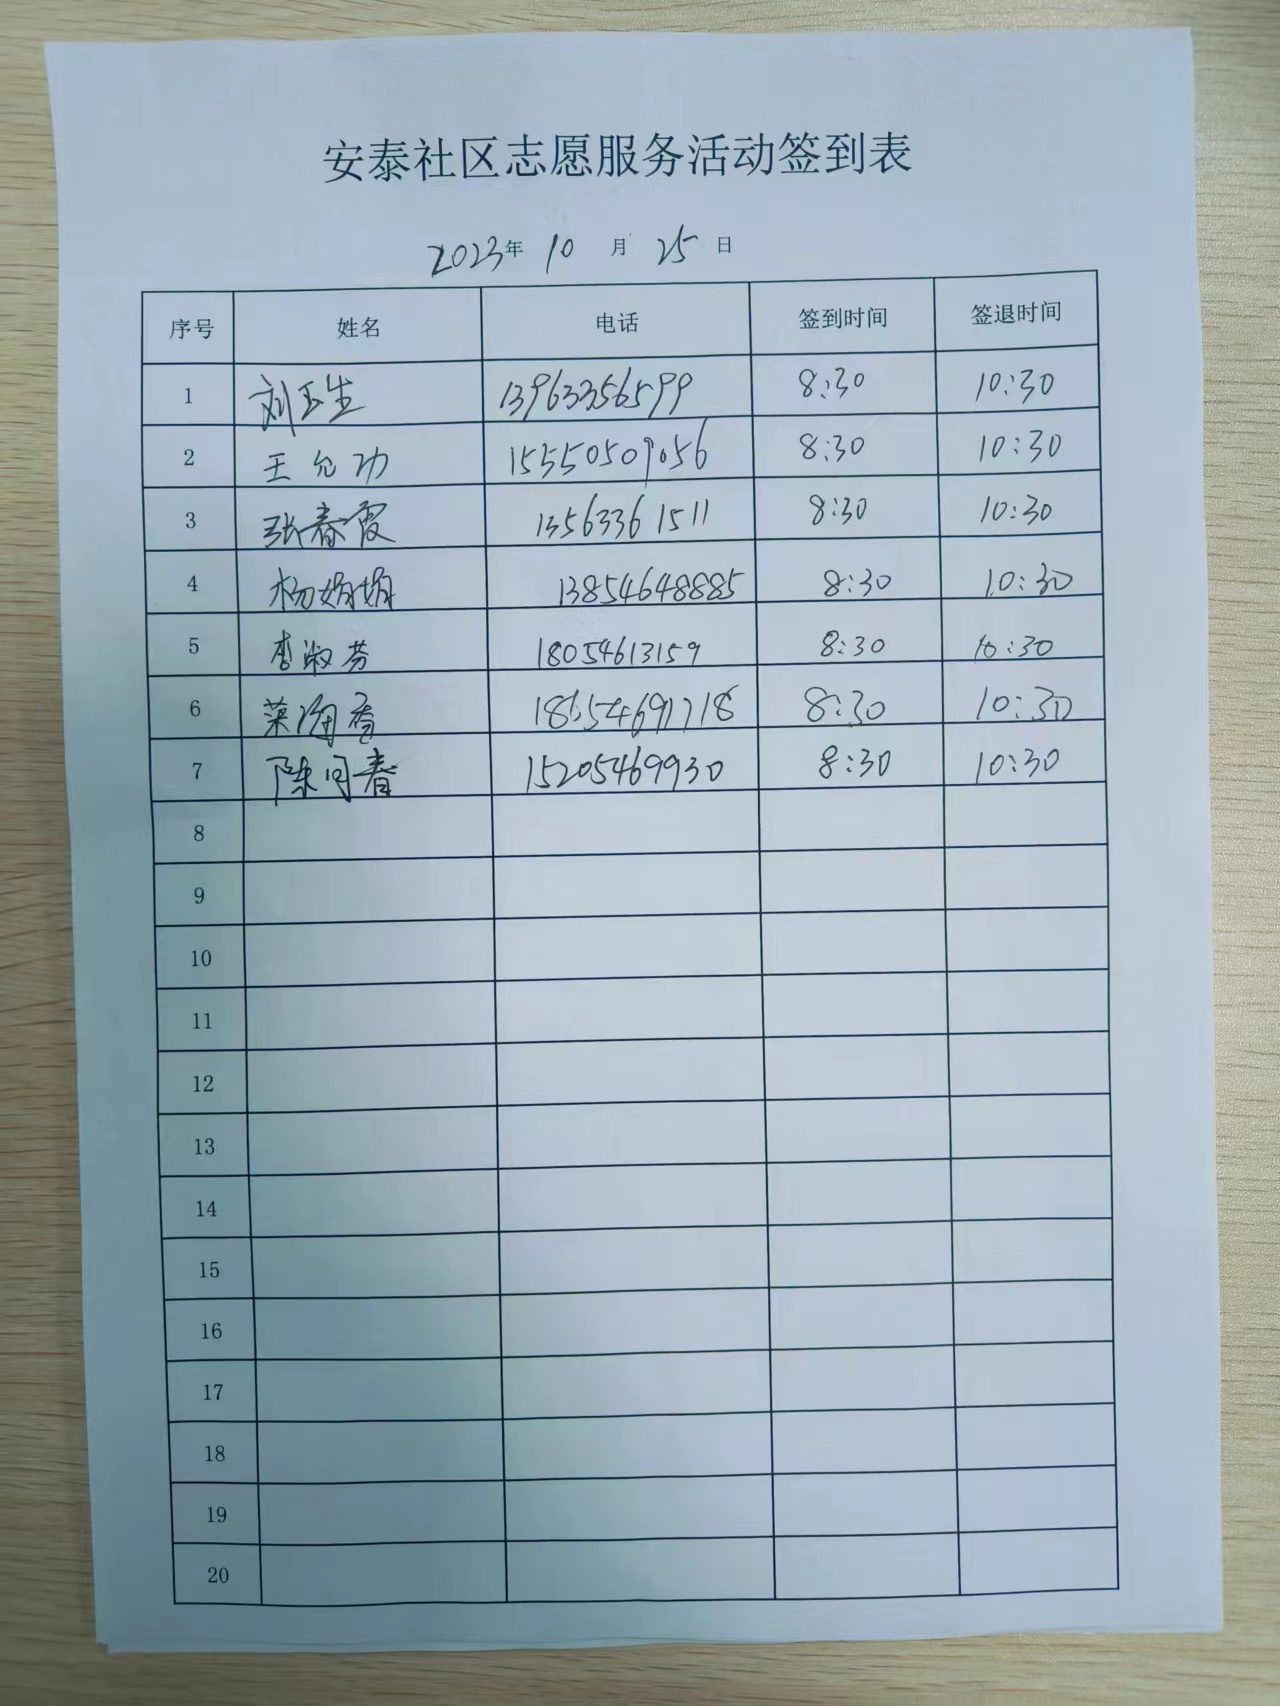 安泰社区志愿服务活动签到表
2023年 10 月 25 日
序号 姓名 电话 签到时间 签退时间
1 刘玉生 13963356599 8:30 10:30
2 王允功 15550509056 8:30 10:30
3 张春霞 13563361511 8:30 10:30
4 杨娟娟 13854648885 8:30 10:30
5 李淑芬 18054613159 8:30 10:30
6 18654691718 8:30 10:30
7 陈同春 15205469930 8:30 10:30
8
9
10
11
12
13
14
15
16
17
18
19
20